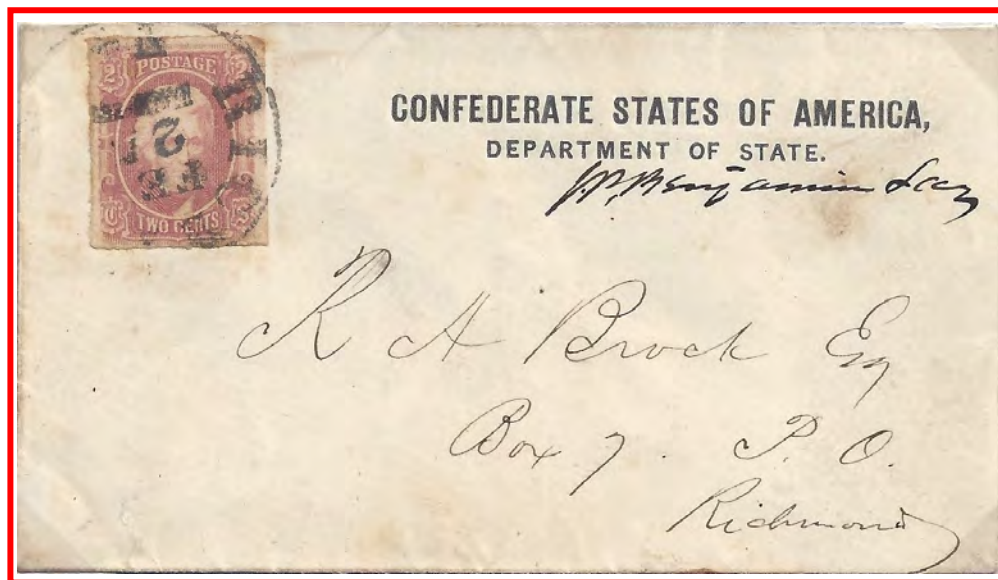 2 POSTAGE 2
TWO CENTS
RI
2
CONFEDERATE STATES OF AMERICA,
DEPARTMENT OF STATE.
J. P. Benjamin Secy
R A Brock Esq
Box 7. P. O.
Richmond